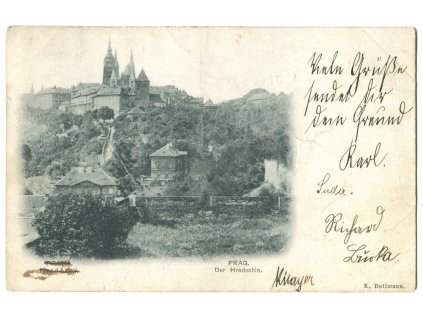 Viele Grüße
sendet dir
dein Freund
Karl.
Richard
PRAHA.
PRAG.
Der Hradschin.
Mayer
K. Bellmann.